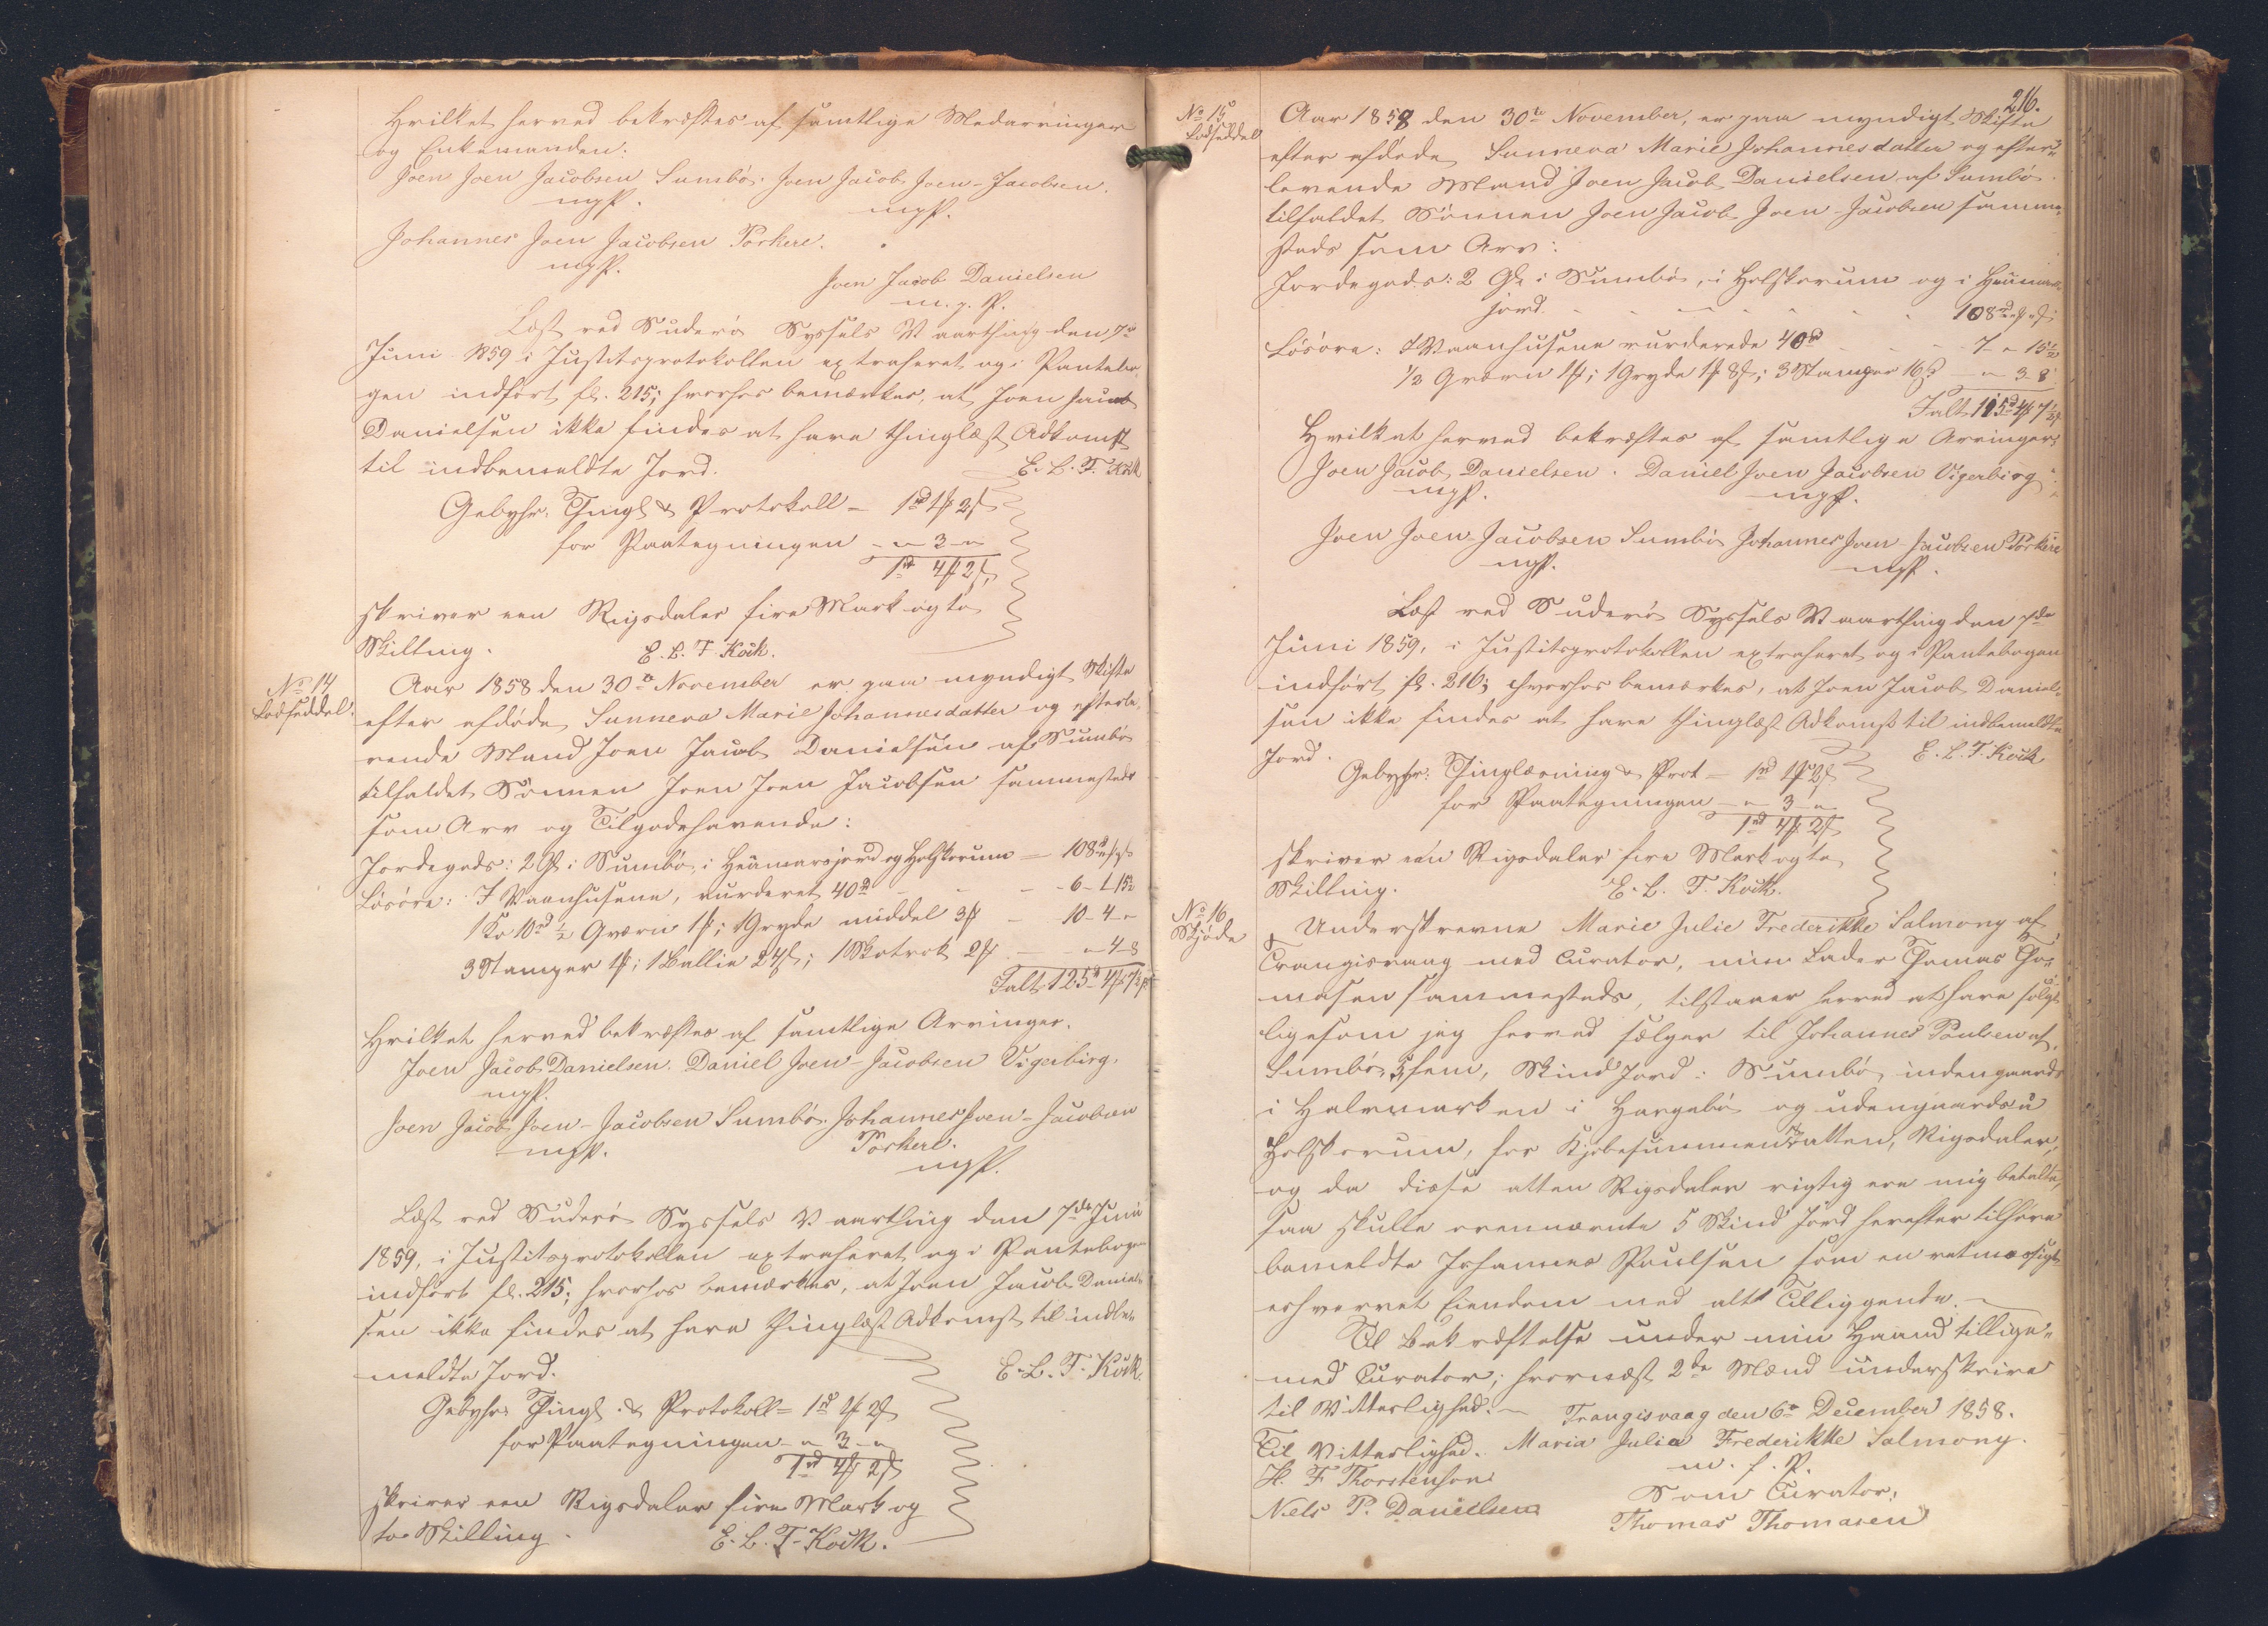 Hvilket herved bekræftes af samtlige Medarvinger
og Enkemanden:
Joen Joen Jacobsen Sumbö. Joen Jacob Joen-Jacobsen.
mgP. mgP.
Johannes Joen Jacobsen Porkere.
mgP.
Joen Jacob Danielsen
m. g. P.
Læst ved Suderö Syssels Vaarthing den 7de
Juni 1859 i Justitsprotokollen extraheret og i Pantebo-
gen indfört fl. 215; hvorhos bemærkes, at Joen Jacob
Danielsen ikke findes at have thinglæst Adkomst
til indbemeldte Jord. E. L. T. Kock
Gebyhr: Thingl & Protokoll = 1rd 1ƒ 2s
for Paategningen - " 3 - "
1rd 4ƒ 2s
skriver een Rigsdaler fire Mark og to
Skilling. E. L. T. Kock.
No 14
Lodseddel.
Aar 1858 den 30te November er paa myndigt Skifte
efter afdöde Sunneva Marie Johannesdatter og efterle-
vende Mand Joen Jacob Danielsen af Sumbö
tilfaldet Sönnen Joen Joen Jacobsen sammesteds
som Arv og Tilgodehavende:
Jordegods: 2 Gl. i Sumbö, i Heümarsjord og Holskorum = 108rd " ƒ " s
Lösöre: I Vaanhusene, vurderet 40rd - - - 6 - 1 15½
1 Ko 10rd ½ Qværn 1ƒ; 1 Gryde middel 3ƒ - 10 - 4 - "
3 Stamper 1ƒ; 1 Ballie 24s; 1 Skotrok 2ƒ - " 4 - 8
Ialt 125rd 4ƒ 7½ s
Hvilket herved bekræftes af samtlige Arvinger.
Joen Jacob Danielsen. Daniel Joen-Jacobsen Vigerbirg.
mgP.
Joen Jacob Joen-Jacobsen Sumbö. Johannes Joen-Jacobsen
mgP. Porkere.
mgP.
Læst ved Suderö Syssels Vaarthing den 7de Juni
1859, i Justitsprotokollen extraheret og i Pantebogen
indfört fl. 215; hvorhos bemærkes, at Joen Jacob Daniel-
sen ikke findes at have thinglæst Adkomst til indbe-
meldte Jord. E. L. T. Kock.
Gebyhr: Thingl. & Protokoll = 1rd 1ƒ 2s
for Paategningen - " 3 - "
1rd 4ƒ 2s
skriver een Rigsdaler fire Mark og
to Skilling. E. L. T. Kock.
216.
No 15
Lodseddel
Aar 1858 den 30te November, er paa myndigt Skifte
efter afdöde Sunneva Marie Johannesdatter og efter-
levende Mand Joen Jacob Danielsen af Sumbö
tilfaldet Sönnen Joen Jacob Joen-Jacobsen samme-
steds som Arv:
Jordegods: 2 Gl. i Sumbö, i Holskorum og i Heümars-
jord. - - - - - - 108rd " ƒ " s
Lösöre: I Vaanhusene vurderede 40rd - - - 7 - " 15½
½ Qværn 1ƒ; 1 Gryde 1ƒ 8s; 3 Stamper 16s - " 3 8
Ialt 115rd 4ƒ 7½ s
Hvilket herved bekræftes af samtlige Arvinger:
Joen Jacob Danielsen. Daniel Joen Jacobsen Vigerbirg
mgP. mgP.
Joen Joen-Jacobsen Sumbö Johannes Joen-Jacobsen Porkere
mgP. mgP.
Læst ved Suderö Syssels Vaarthing den 7de
Juni 1859, i Justitsprotokollen extraheret og i Pantebogen
indfört fl. 216; hvorhos bemærkes, at Joen Jacob Daniel-
sen ikke findes at have thinglæst Adkomst til indbemeldte
Jord. E. L. T. Kock
Gebyhr: Thinglæsning & Prot = 1rd 1ƒ 2s
for Paategningen - " 3 - "
1rd 4ƒ 2s
skriver een Rigsdaler fire Mark og to
Skilling. E. L. T. Kock.
No 16
Skjöde
Underskrevne Marie Julie Frederikke Salmony af
Trangisvaag med Curator, min Fader Thomas Tho-
masen sammesteds, tilstaaer herved at have solgt
ligesom jeg herved sælger til Johannes Poulsen af
Sumbö, 5, fem, Skind Jord i Sumbö indengaards
i Halvmarken i Hargabö og udengaards i
Holskorum, for Kjöbesummen 18 atten, Rigsdaler,
og da disse atten Rigsdaler rigtig ere mig betalte,
saa skulle ovennævnte 5 Skind Jord herefter tilhöre
bemeldte Johannes Poulsen som en retmæssigt
erhvervet Eiendom med alt Tilliggende.
Til Bekræftelse under min Haand tillige-
med Curator; hvornæst 2de Mænd underskrive
til Vitterlighed. Trangisvaag den 6te December 1858.
Til Vitterlighed. Maria Julia Frederikke Salmony.
H. F Thorstensen m. f. P.
Niels P. Danielsen Som Curator:
Thomas Thomasen